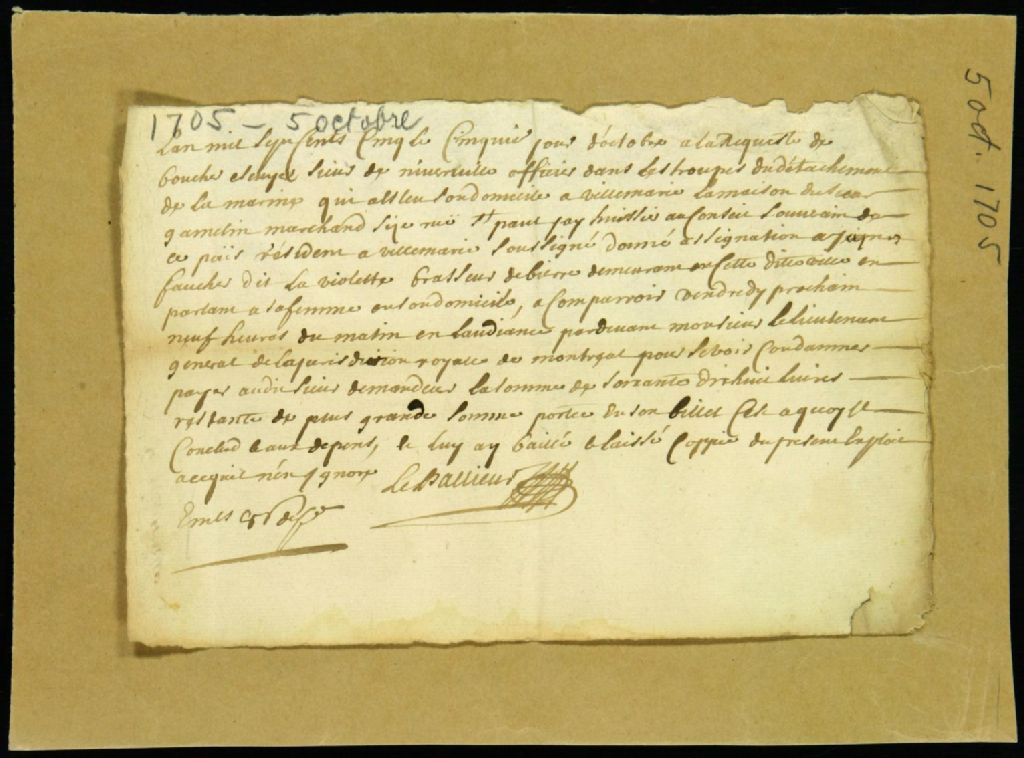 1705 - 5 octobre
Lan mil sept Cents Cinq le Cinquie jour doctobre a la Requeste de
boucher escuyer sieur de niverville officier dans les troupes du détachement
de la marine qui a esleu son domicile a villemarie la maison du sieur
gamelin marchand size rue St paul jay huissier au Conseil Souverain de
ce païs résident a villemarie soussigné donné assignation a
faucher dit la violette brasseur de bierre demeurant en Cette ditte ville en
parlant a sa femme en son domicile, a Comparroir vendredy prochain
neuf heures du matin en laudiance pardevant monsieur le lieutenant
general de la jurisdiction royalle de montreal pour se voir Condamner
payer audit sieur demandeur la somme de soixante dix huit livres
restante de plus grande somme portée en son billet a quoy Il
Conclud et aux depens, et luy ay baillé et laissé Coppie du present Exploit
a ce quil nen Ignore Le Pallieur
5 oct. 1705